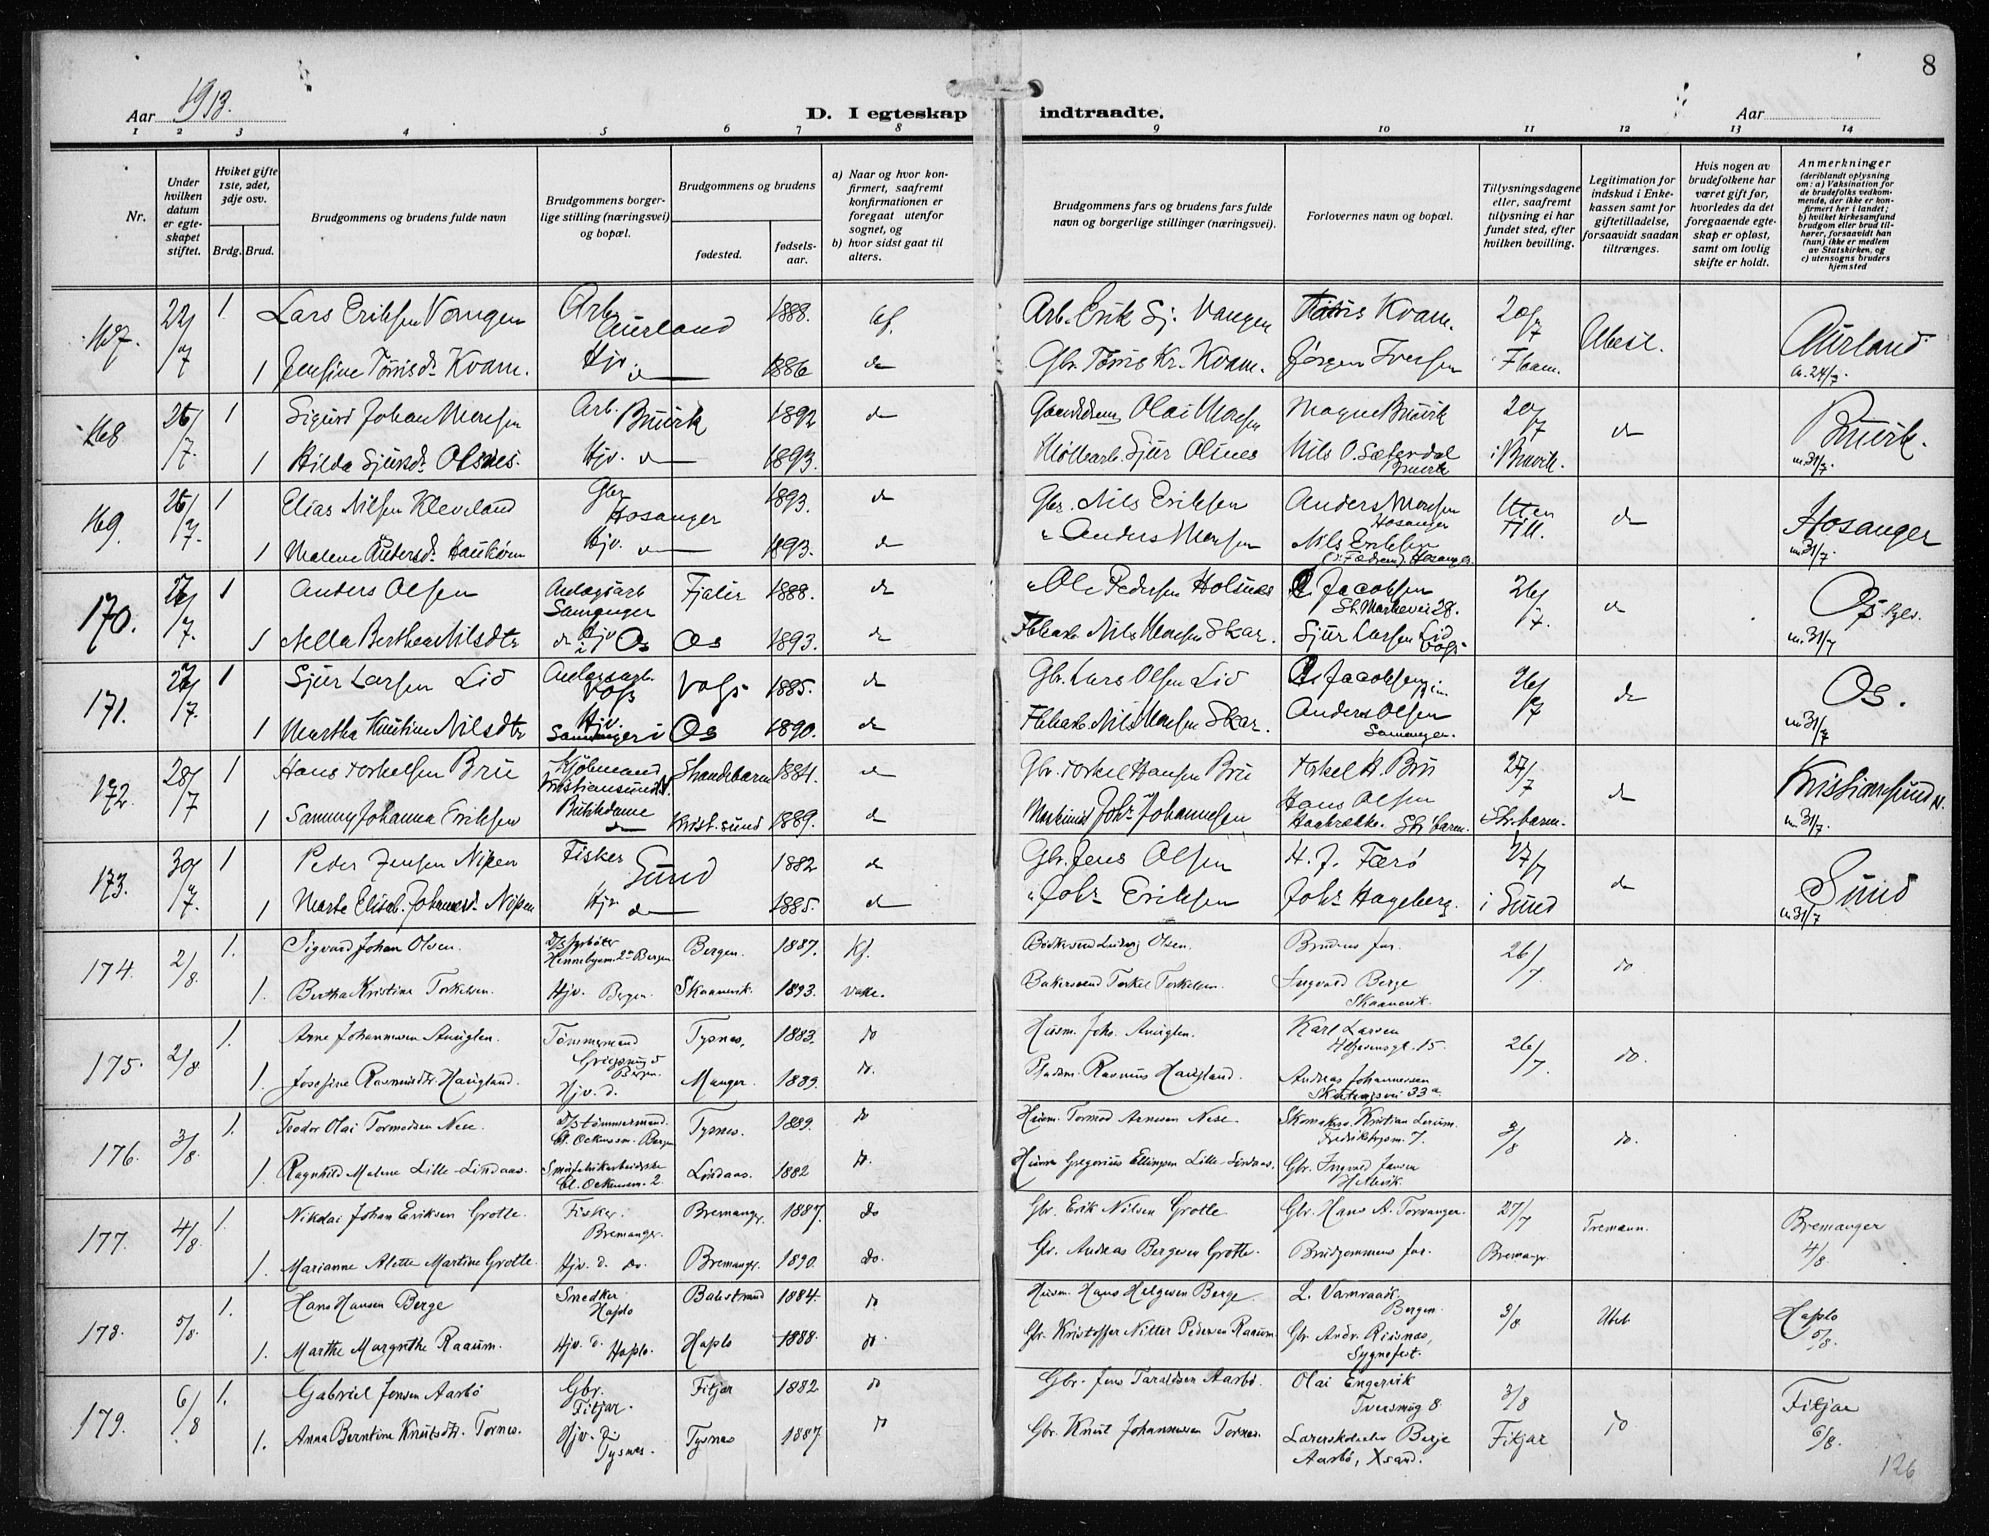 8
Aar 1913.
D. I egteskap indtraadte.
Aar
1 2 3 4 5 6 7 8 9 10 11 12 13 14
Nr.
Under hvilken datum er egteskapet stiftet.
Hviket gifte 1ste, 2det, 3dje osv.
Brdg. Brud.
Brudgommens og brudens fulde navn
Brudgommens borgerlige stilling (næringsvei) og bopæl.
Brudgommens og brudens
fødested.
fødselsaar.
a) Naar og hvor konfirmert, saafremt konfirmationen er foregaat utenfor sognet, og
b) hvor sidst gaat til alters.
Brudgommens fars og brudens fars fulde navn og borgerlige stillinger (næringsvei).
Forlovernes navn og bopæl.
Tillysningsdagene eller, saafremt tillysning ei har fundet sted, efter hvilken bevilling.
Legitimation for indskud i Enkekassen samt for giftetilladelse, forsaavidt saadan tiltrænges.
Hvis nogen av brudefolkene har været gift før, hvorledes da det foregaaende egteskap er opløst, samt om lovlig skifte er holdt.
Anmerkninger
(deriblandt oplysning om: a) Vaksination for de brudefolks vedkommende, der ikke er konfirmert her i landet; b) hvilket kirkesamfund brudgom eller brud tilhører, forsaavidt han (hun) ikke er medlem av Statskirken, og c) utensogns bruders hjemsted
167. 22/7 1. Lars Eriksen Vangen Arb. Aurland 1888. kf. Arb. Erik Sj. Vangen Tørris Kvam. 20/7 Ubesl. Aurland
1 Jensine Tørrisd. Kvam. Hjv. do 1886 do Gbr. Tørris Kr. Kvam. Jørgen Iversen i Flaam. a. 24/7.
168 26/7. 1 Sigurd Johan Monsen Arb. Bruvik 1892 do Gaardsdreng Olai Monsen Magne Bruvik 20/7 do Bruvik.
1 Hilda Sjursd. Olsnes. Hjv. do 1893. Møllearb. Sjur Olsnes Nils O. Sæterdal Bruvik i Bruvik. m. 31/7.
169. 26/7. 1 Elias Nilsen Kleveland Gbr Hosanger 1893. do Gbr. Nils Eriksen Anders Monsen Hosanger Uten Till. do Hosanger
1 Malene Andersd. Haukøen Hjv. do 1893. do " Anders Monsen Nils Eriksen Hosanger m. 31/7.
170. 26/7. 1 Anders Olsen Anlægsarb Samnanger Fjaler 1888. do " Ole Pedersen Holsnes Jacobsen St. Markevei 28. 26/7. do Os
1 Nella Berthea Nilsdtr Hjv Os Os 1893. do Nils Monsen Skar. Sjur Larsen Lid Voss m. 31/7
171. 27/7. 1 Sjur Larsen Lid Anlægsarb. Voss Voss 1885. do Gbr. Lars Olsen Lid Jacobsen 26/7 do Os.
1 Martha Kristine Nilsdtr Hjv. Samnanger i Os 1890. do Nils Monsen Skar. Anders Olsen Samnanger. m. 31/7
172. 28/7 1 Hans Torkelsen Bru Kjøbmand Kristiansund N. Strandebarm 1884. do Gbr. Torkel Hansen Bru Torkel H. Bru 27/7 do Kristiansund N.
1 Sanny Johanna Eriksen Butikdame do Krist.sund 1889. do Maskinist Johs Johannesen Hans Olsen Str.barm. i Str.barm. m. 31/7.
173. 30/7. 1 Peder Jensen Nipen Fisker Sund 1882 do Gbr. Jens Olsen H. J. Færø 27/7 do Sund
1 Marte Elisab. Johannesd. Nipen Hjv do 1885. do " Johs Eriksen Johs Hageberg. i Sund m 31/7
174. 2/8 1. Sigvard Johan Olsen. D/S fyrbøter Bergen Bergen. 1887. Kf. Bødkersvend Ludvig Olsen. Brudens far. 26/7 do
1. Bertha Kristine Torkelsen. Hjv. Bergen. Skaanevik. 1893. Bakersvend Torkel Torkelsen. Ingvard Berge Skaanevik.
175. 2/8 1. Arne Johannessen Anuglen. Tømmermand Bergen Tysnes. 1883. do Husm. Johs. Anuglen. Karl Larsen 15. 26/7 do.
1. Josefine Rasmusdtr. Haugland. Hjv. d. Manger. 1889. do. Rasmus Haugland. Andreas Johannessen 33 a.
176. 3/8. 1. Teodor Olai Tormodsen Nese. D/S tømmermand. Bergen Tysnes. 1889. do Husm. Tormod Arnesen Nese. Skomakers. Kristian Lerum. 7. 3/8 do.
1. Ragnhild Malene Lille-Lindaas. 2 Lindaas. 1882 do. Husm Gregorius Ellingsen Lille-Lindaas. Gbr. Ingvald Jansen
177. 4/8. 1. Nikolai Johan Eriksen Grotle. Fisker. Bremanger. Bremanger. 1887. do Gbr. Erik Nilsen Grotle Gbr. Hans A. Torvanger. 27/7 Tremenn. Bremanger
1. Marianne Alette Martine Grotle. Hjv. d. do. Bremanger. 1890. do. Gbr. Andreas Bergesen Grotle. Brudgommens far. Bremangr. 4/8.
178. 5/8. 1. Hans Hansen Berge Snedker Hafslo Balestrand 1884. do Husm. Hans Helgesen Berge. L. Vamraak, Bergen. 3/8 Ubesl Hafslo
1. Marthe Margrethe Raaum. Hjv. d. Hafslo. Hafslo 1888. do Gbr. Kristoffer Nitter Pedersen Raaum Gbr. Andr. Riisnæs, Sygnefest. 5/8.
179. 6/8 1. Gabriel Jensen Aarbø Gbr. Fitjar. Fitjar 1882 do Gbr. Jens Taraldsen Aarbø. Olai Engevik Tversmug 8. 3/8 do Fitjar
1. Anna Berntine Knutsdtr. Tornes. Hjv. Tysnes. Tysnes 1887. do Gbr. Knut Johannessen Tornes. Lærerskoleelev Berje Aarbø, Xsand. Fitjar 6/8.
126